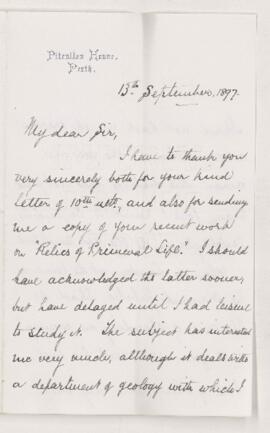 Pitcullen House,
Perth.
13th September, 1897.
My dear Sir,
I have to thank you
very sincerely both for your kind
letter of 10th ult., and also for sending
me a copy of your recent work
on "Relics of Primeval Life." I should
have acknowledged the latter sooner,
but have delayed until I had leisure
to study it. The subject has interested
me very much, although it deals with
a department of geology with which I